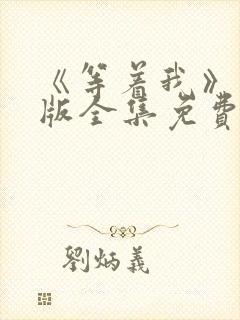 《等着我》
版全集免费
劉炳義